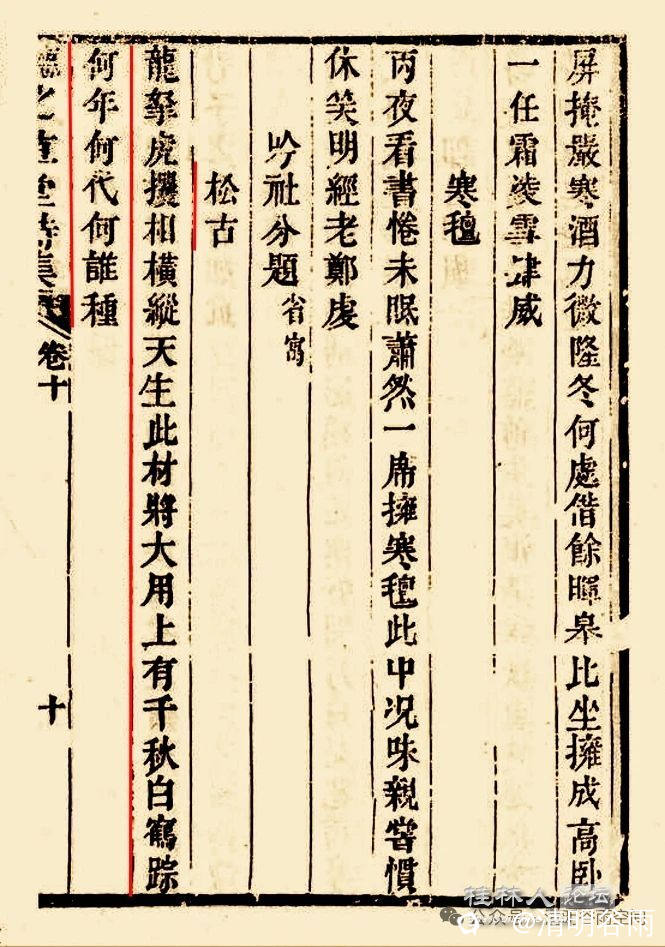 屏掩嚴寒酒力微隆冬何處借餘暉皋比坐擁成高卧
一任霜凌雪肆威
寒氊
丙夜看書倦未眠蕭然一席擁寒氊此中况味親嘗慣
休笑明經老鄭虔
吟社分題 省寓
松古
龍拏虎攫相橫縱天生此材將大用上有千秋白鶴踪
何年何代何誰種
之草堂詩集 卷十 十
桂林人论坛
公众号
@清明谷雨